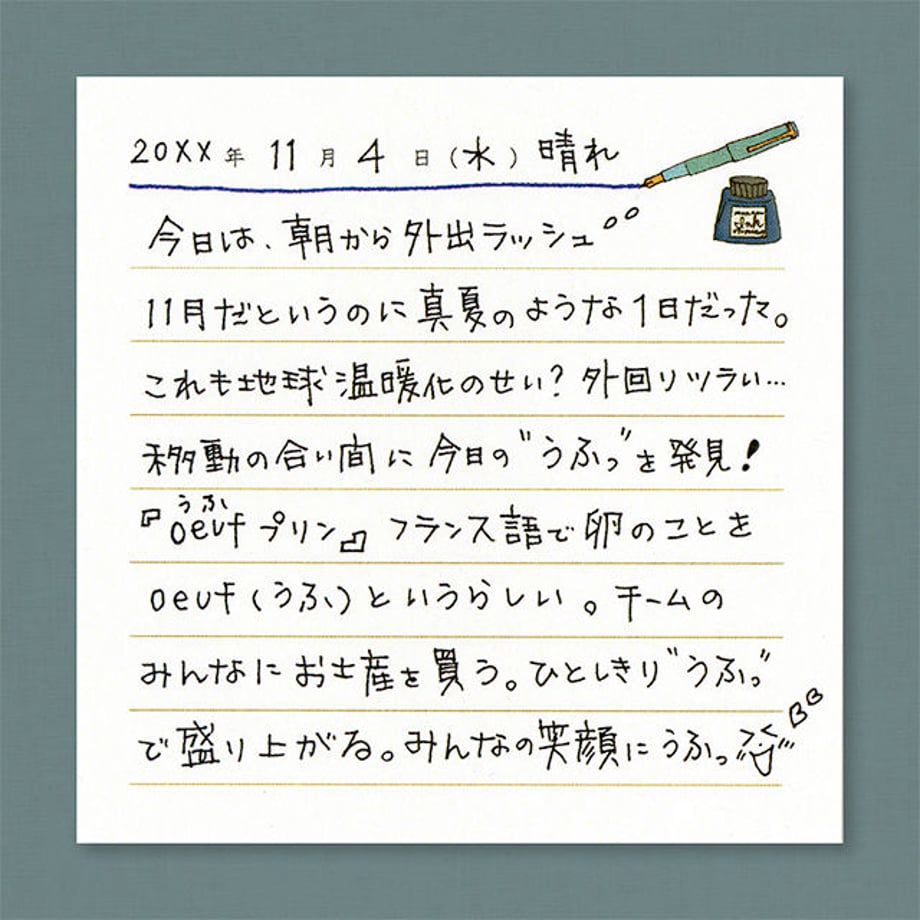 20XX年 11月 4日(水) 晴れ
今日は、朝から外出ラッシュ
11月だというのに真夏のような1日だった。
これも地球温暖化のせい?外回りツラい…
移動の合い間に今日の"うふっ"を発見!
うふ
『oeuf プリン』フランス語で卵のことを
oeuf(うふ)というらしい。チームの
みんなにお土産を買う。ひとしきり"うふっ"
で盛り上がる。みんなの笑顔にうふっ